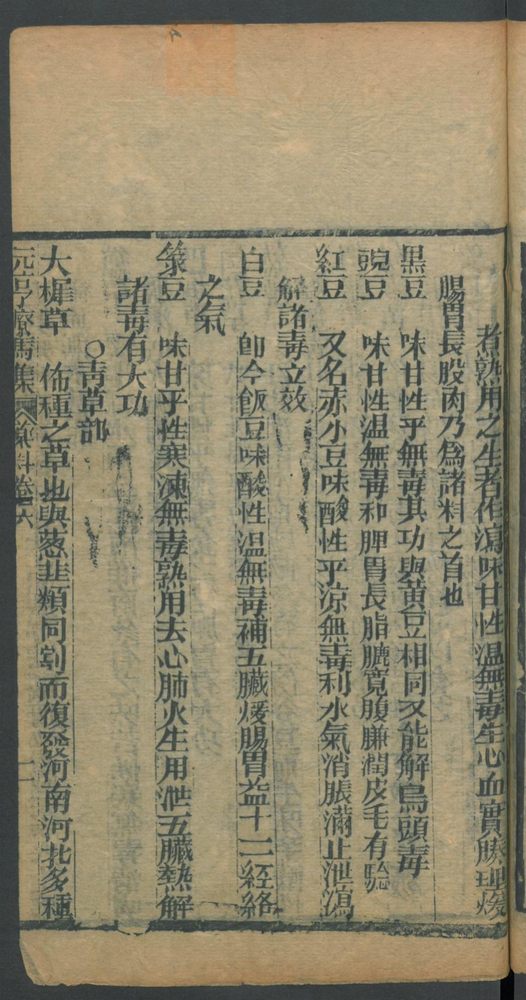 煮熟用之生者作瀉味甘性溫無毒生心血實腠理煖
腸胃長股肉乃為諸料之首也
黑豆　味甘性平無毒其功與黃豆相同又能解烏頭毒
豌豆　味甘性溫無毒和脾胃長脂膘寬腹臁潤皮毛有驗
紅豆　又名赤小豆味酸性平涼無毒利水氣消脹滿止泄瀉
解諸毒立效
白豆　卽今飯豆味酸性温無毒補五臟煖腸胃益十二經絡
之氣
菉豆　味甘平性寒凍無毒熟用去心肺火生用泄五臟熱解
諸毒有大功
○青草部
大穊草　佈種之草也與葱韭類同割而復發河南河北多種
元亨療馬集　草料卷六　二